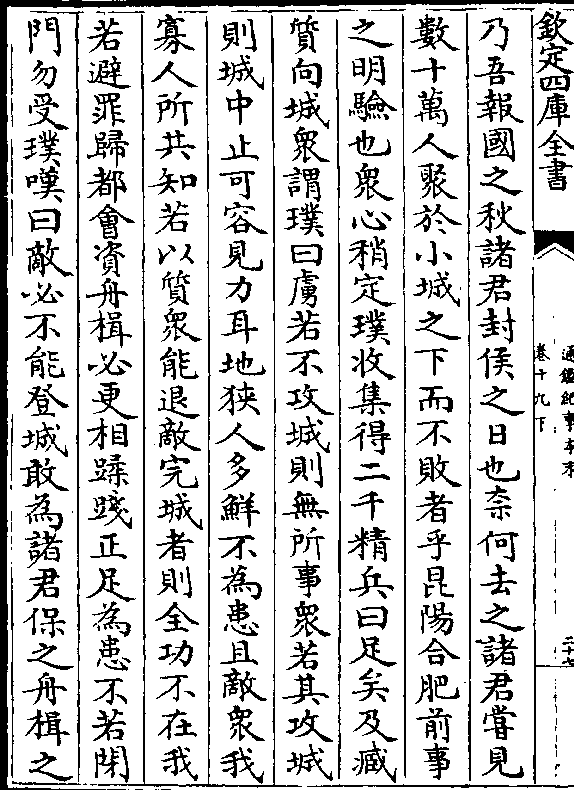 欽定四庫全書
通鑑紀事本末
卷十九下
二十七
乃吾報國之秋諸君封侯之日也柰何去之諸君嘗見
數十萬人聚於小城之下而不敗者乎昆陽合肥前事
之明驗也衆心稍定璞收集得二千精兵曰足矣及臧
質向城衆謂璞曰虜若不攻城則無所事衆若其攻城
則城中止可容見力耳地狹人多鮮不為患且敵衆我
寡人所共知若以質衆能退敵完城者則全功不在我
若避罪歸都會資舟楫必更相蹂踐正足為患不若閉
門勿受璞嘆曰敵必不能登城敢為諸君保之舟楫之